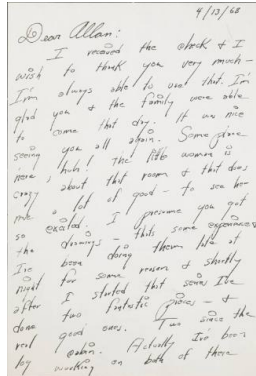 4/13/68
Dear Allan:
I received the check & I
wish to thank you very much -
I'm always able to use that. I'm
glad you & the family were able
to come that day. It was nice
seeing you all again. Some place
here, huh! The little woman is
crazy about this room & that does
me a lot of good - to see her
so excited. I presume you got
the drawings - thats some experience
I've been doing them late at
night for some reason & shortly
after I started that series I've
done two fantastic pieces - &
real good ones. Two since the
by Actually I've been
working on both of these